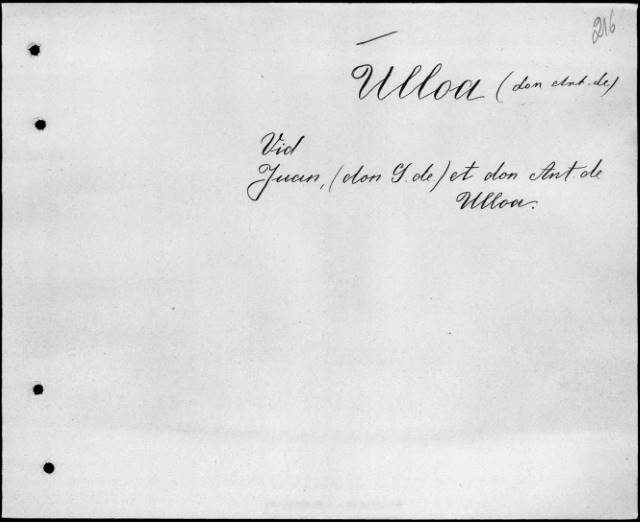 216
Ulloa (don Ant. de)
Vid
Juan, (don G. de) et don Ant de
Ulloa.